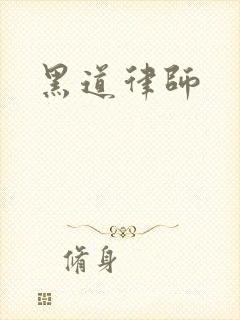 黑道律師
脩身